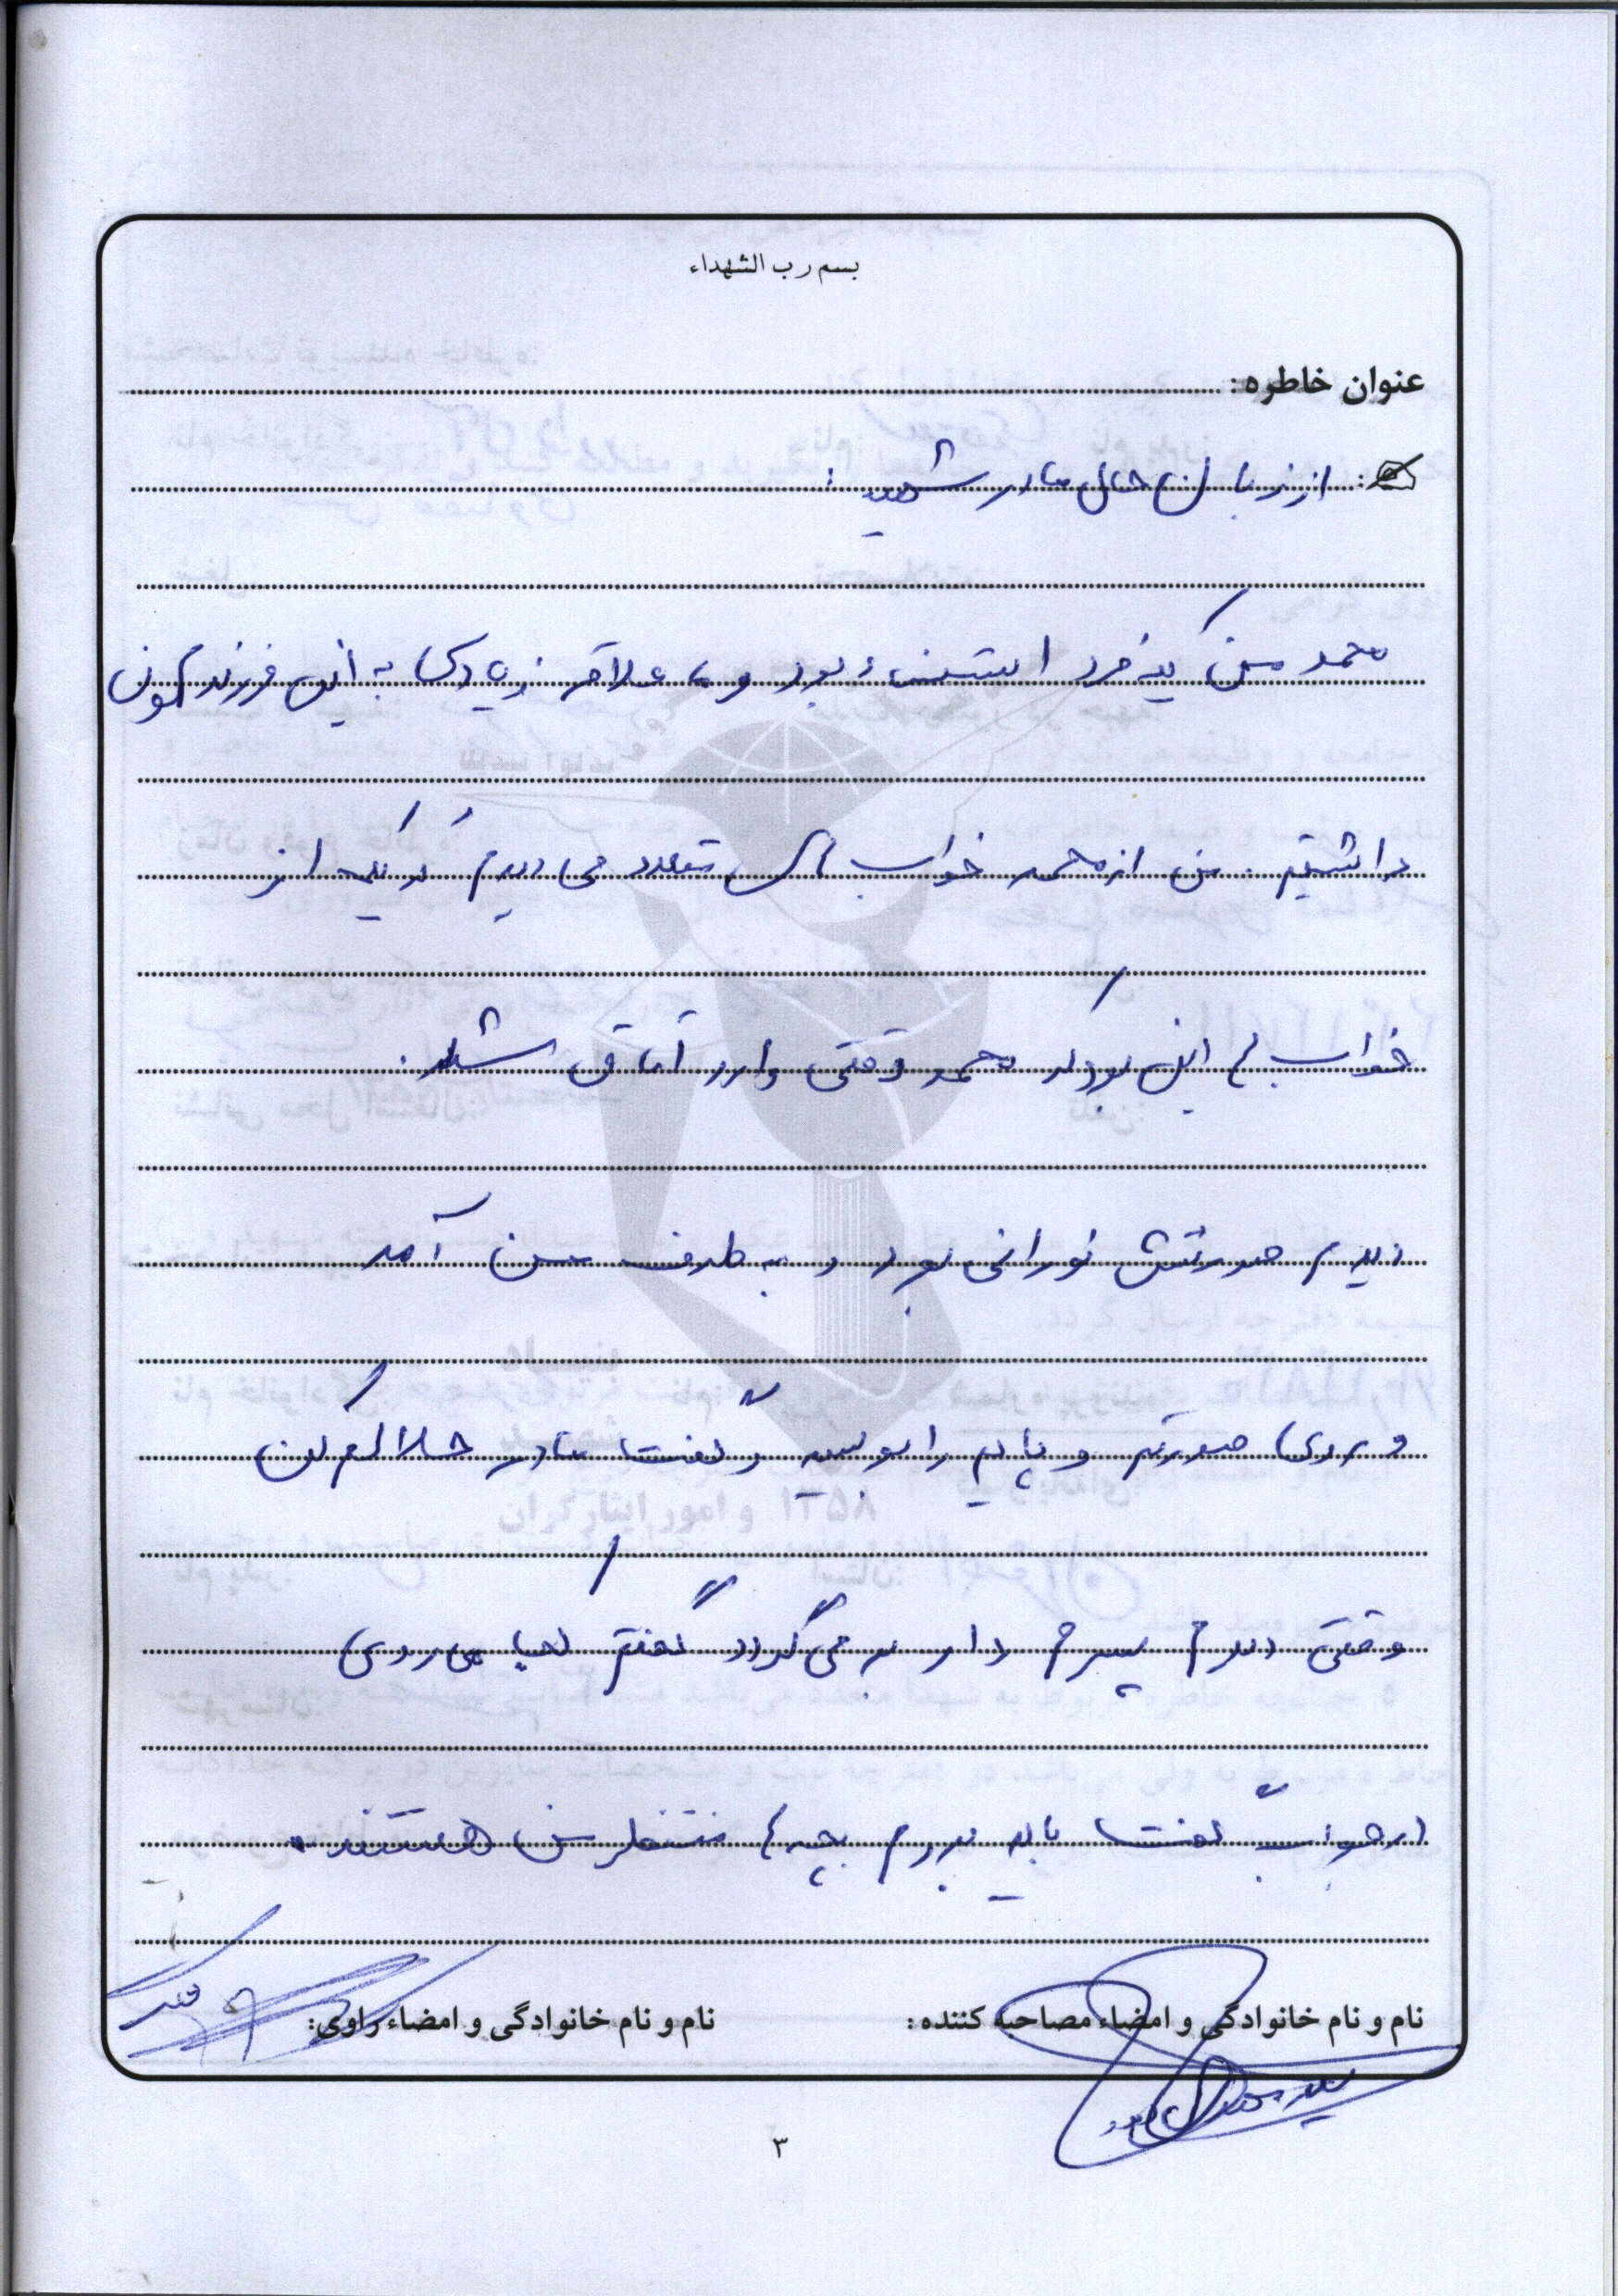 بسم رب الشهداء
عنوان خاطره:
از زبان حال مادر شهید:
محمد من یه فرد استثناء بود و ما علاقه زیادی به این فرزندمون
داشتیم. من از محمد خواب های متعدد می دیدم که یکی از
خواب ها این بود که محمد وقتی وارد اتاق شد.
دیدم صورتش نورانی بود و به طرف من آمد
و روی صورتم و پایم را بوسید و گفت مادر حلالم کن
وقتی دیدم پسرم دارد بر می گردد گفتم کجا می روی
در جواب گفت باید بروم بچه ها منتظر من هستند.
نام و نام خانوادگی و امضاء مصاحبه کننده:
نام و نام خانوادگی و امضاء راوی:
۳